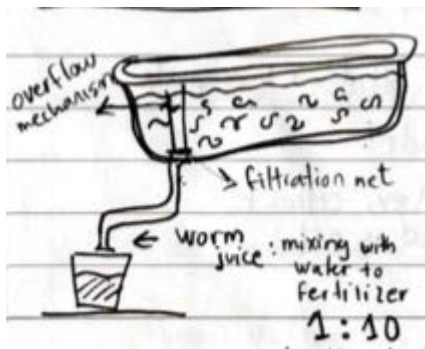 overflow
mechanism
filtration net
worm
juice : mixing with
water to
fertilizer
1 : 10